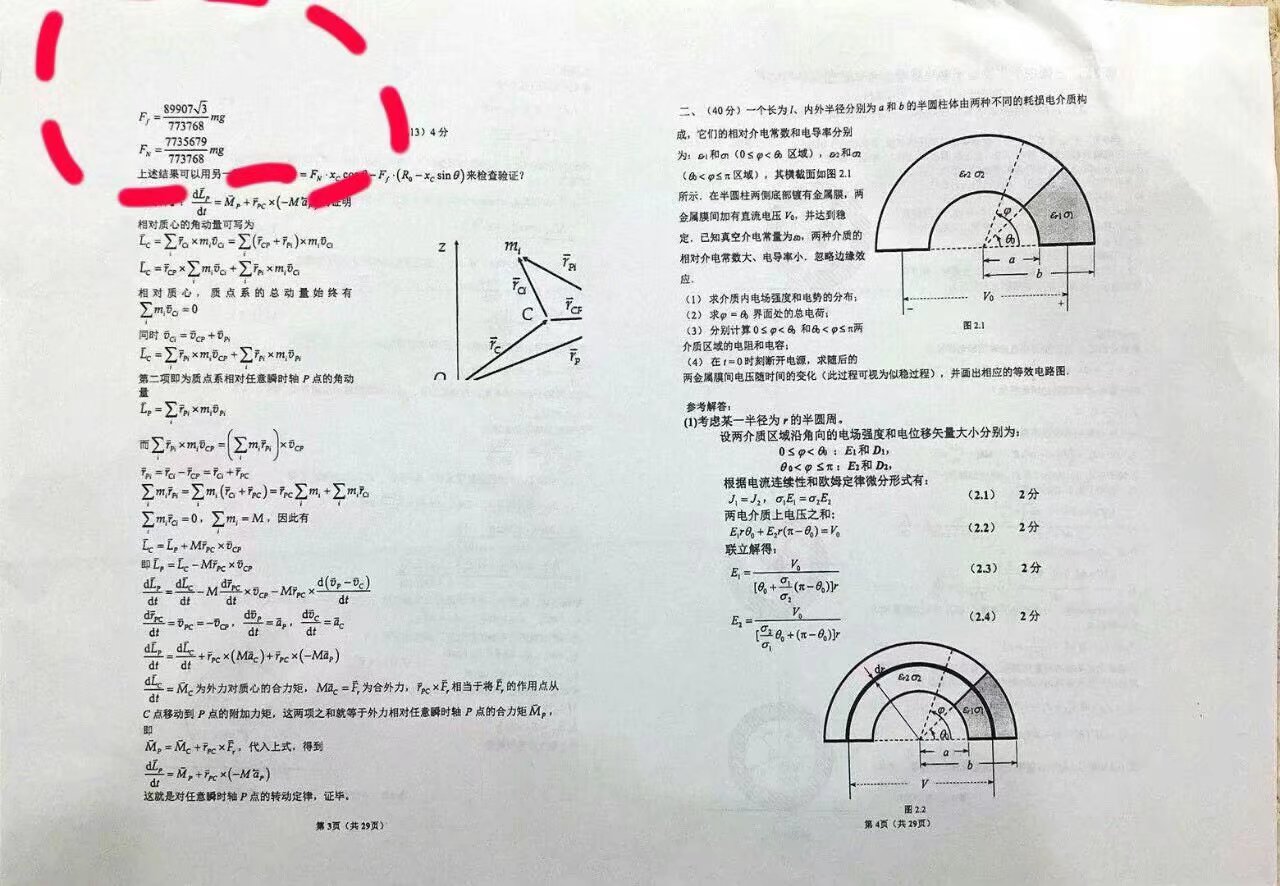 F_f = 89907√3/773768 mg
13) 4分
F_N = 7735679/773768 mg
上述结果可以用另一
= F_N · x_C cos θ − F_f · (R_0 − x_C sin θ) 来检查验证？
dL̄_P/dt = M̄_P + r̄_PC × (−Mā_P) 证明
相对质心的角动量可写为
L̄_C = ∑_i r̄_Ci × m_i ῡ_Ci = ∑_i (r̄_CP + r̄_Pi) × m_i ῡ_Ci
L̄_C = r̄_CP × ∑_i m_i ῡ_Ci + ∑_i r̄_Pi × m_i ῡ_Ci
相对质心，质点系的总动量始终有
∑_i m_i ῡ_Ci = 0
同时 ῡ_Ci = ῡ_CP + ῡ_Pi
L̄_C = ∑_i r̄_Pi × m_i ῡ_CP + ∑_i r̄_Pi × m_i ῡ_Pi
第二项即为质点系相对任意瞬时轴 P 点的角动
量
L̄_P = ∑_i r̄_Pi × m_i ῡ_Pi
而 ∑_i r̄_Pi × m_i ῡ_CP = (∑_i m_i r̄_Pi) × ῡ_CP
r̄_Pi = r̄_Ci − r̄_CP = r̄_Ci + r̄_PC
∑_i m_i r̄_Pi = ∑_i m_i (r̄_Ci + r̄_PC) = r̄_PC ∑_i m_i + ∑_i m_i r̄_Ci
∑_i m_i r̄_Ci = 0，∑_i m_i = M，因此有
L̄_C = L̄_P + M r̄_PC × ῡ_CP
即 L̄_P = L̄_C − M r̄_PC × ῡ_CP
dL̄_P/dt = dL̄_C/dt − M dr̄_PC/dt × ῡ_CP − M r̄_PC × d(ῡ_P − ῡ_C)/dt
dr̄_PC/dt = ῡ_PC = −ῡ_CP，dῡ_P/dt = ā_P，dῡ_C/dt = ā_C
dL̄_P/dt = dL̄_C/dt + r̄_PC × (Mā_C) + r̄_PC × (−Mā_P)
dL̄_C/dt = M̄_C 为外力对质心的合力矩，Mā_C = F̄_r 为合外力，r̄_PC × F̄_r 相当于将 F̄_r 的作用点从
C 点移动到 P 点的附加力矩，这两项之和就等于外力相对任意瞬时轴 P 点的合力矩 M̄_P，
即
M̄_P = M̄_C + r̄_PC × F̄_r，代入上式，得到
dL̄_P/dt = M̄_P + r̄_PC × (−Mā_P)
这就是对任意瞬时轴 P 点的转动定律，证毕。
z
m_i
r̄_Pi
r̄_Ci
C
r̄_CP
r̄_C
r̄_P
O
第3页（共29页）
二、（40分）一个长为 l、内外半径分别为 a 和 b 的半圆柱体由两种不同的耗损电介质构
成，它们的相对介电常数和电导率分别
为：ε₁和σ₁（0≤φ<θ₀ 区域），ε₂和σ₂
（θ₀<φ≤π 区域），其横截面如图 2.1
所示．在半圆柱两侧底部镀有金属膜，两
金属膜间加有直流电压 V₀，并达到稳
定．已知真空介电常量为ε₀，两种介质的
相对介电常数大、电导率小．忽略边缘效
应．
（1）求介质内电场强度和电势的分布；
（2）求φ = θ₀ 界面处的总电荷；
（3）分别计算 0≤φ<θ₀ 和θ₀<φ≤π两
介质区域的电阻和电容；
（4）在 t = 0 时刻断开电源，求随后的
两金属膜间电压随时间的变化（此过程可视为似稳过程），并画出相应的等效电路图．
ε₂ σ₂
ε₁ σ₁
φ
θ₀
a
b
V₀
−
+
图 2.1
参考解答：
(1)考虑某一半径为 r 的半圆周。
设两介质区域沿角向的电场强度和电位移矢量大小分别为：
0≤φ<θ₀：E₁和 D₁，
θ₀<φ≤π：E₂和 D₂，
根据电流连续性和欧姆定律微分形式有：
J₁ = J₂，σ₁E₁ = σ₂E₂ （2.1） 2分
两电介质上电压之和：
E₁rθ₀ + E₂r(π−θ₀) = V₀ （2.2） 2分
联立解得：
E₁ = V₀/[θ₀ + σ₁/σ₂ (π−θ₀)]r （2.3） 2分
E₂ = V₀/[σ₂/σ₁ θ₀ + (π−θ₀)]r （2.4） 2分
dr
ε₂ σ₂
ε₁ σ₁
φ
θ₀
a
b
V
图 2.2
第4页（共29页）